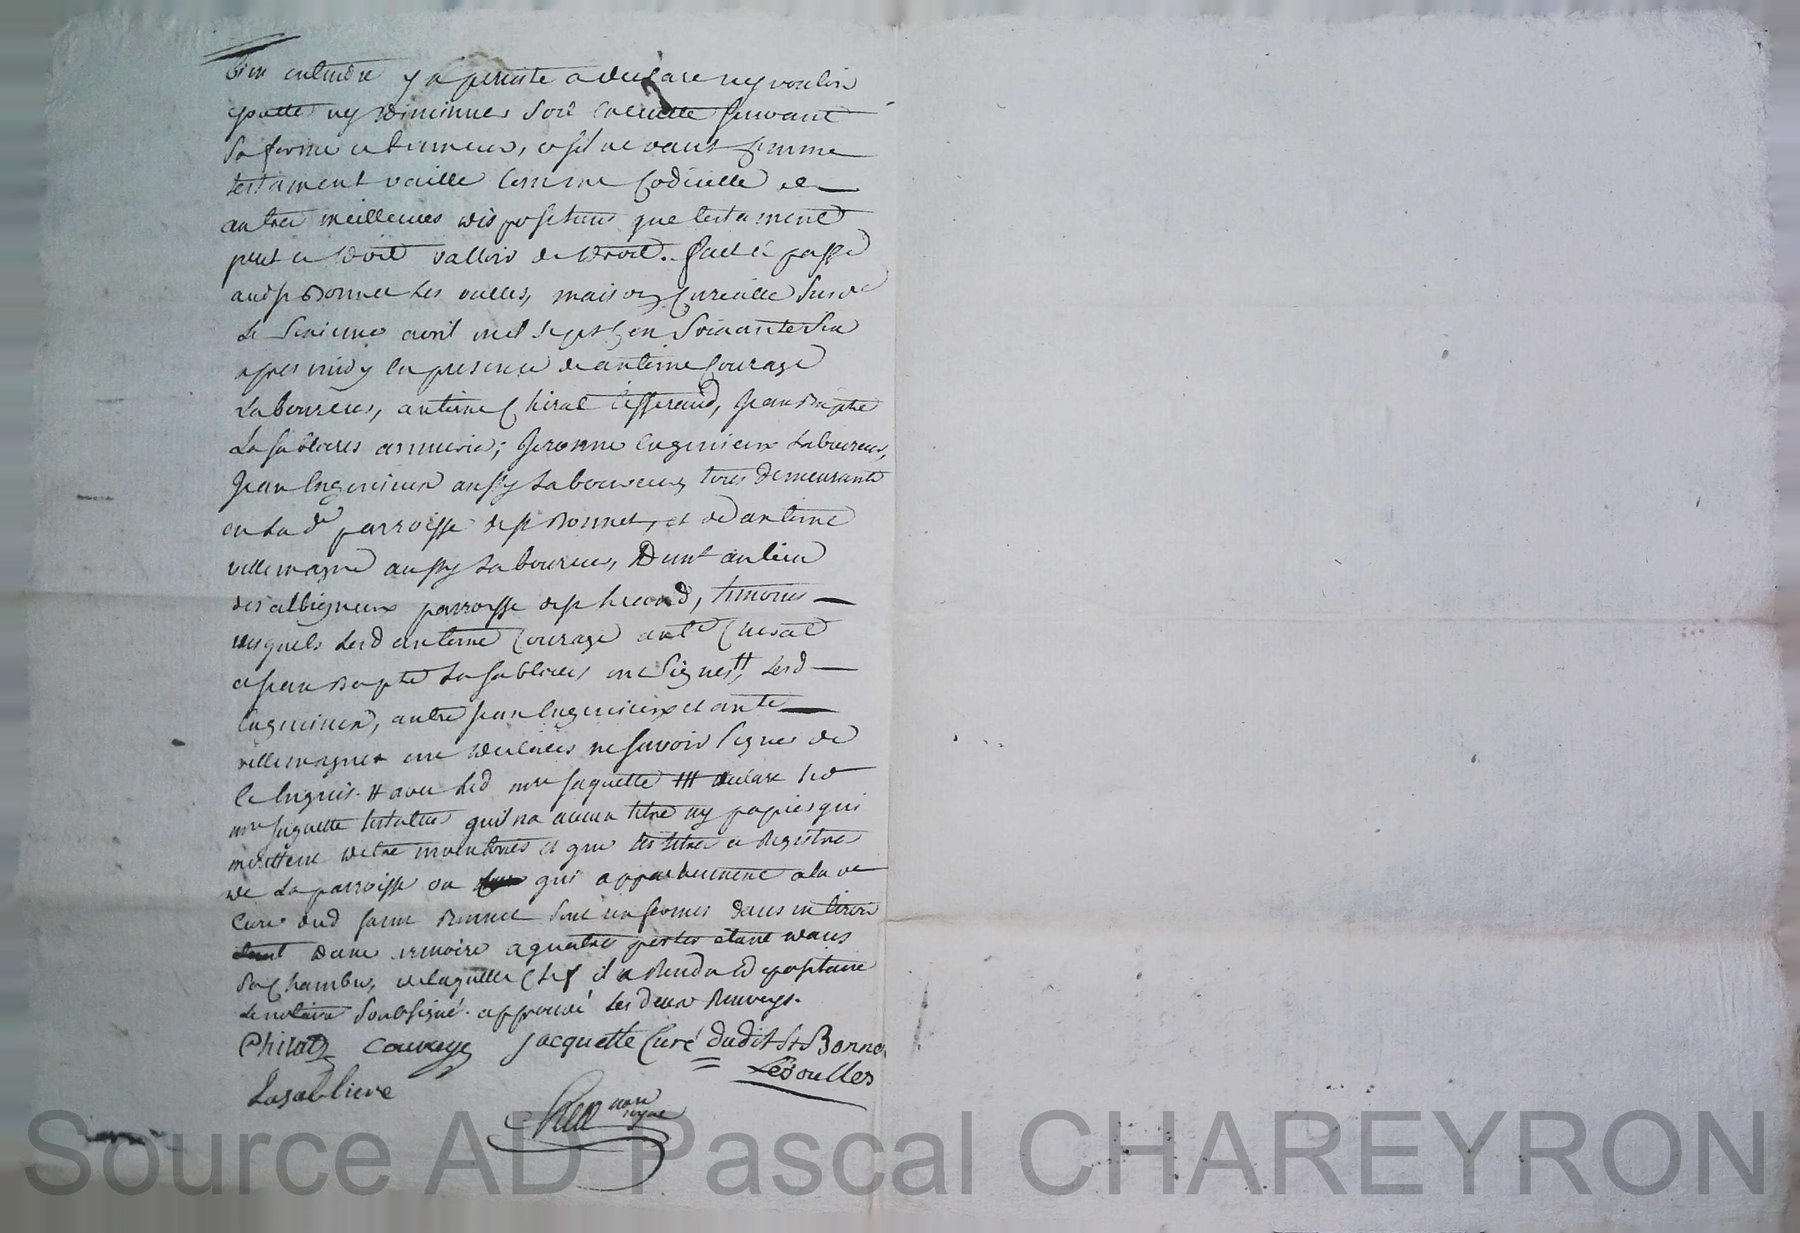 bien entendre y a persisté a declaré n'y vouloir
ajouter ny diminuer soit executté suivant
sa forme et teneur, et s'il ne vaut comme
testament vaille comme codicille et
autres meilleures dispositions que testament
peut et doit valloir de droit. fait et passé
aud st Bonnet les oulles, maison curialle susd
le avril mil sept cen soixante
apres midy en presence de antoine Courage
Laboureur, antoine Chirat tisserand, Jean Bapte
Lasabliere armurier; Jeromme Lagenieux Laboureur,
Jean Lagenieux aussy Laboureur, tous demeurants
en Lad parroisse de st Bonnet, et de antoine
villemagne aussy Laboureur, Dmt au lieu
des albigneux parroisse de st heand, temoins
desquels lesd antoine Courage ante Chirat
et Jean Bapte Lasabliere ont signés #, Lesd
Lagenieux, autre Jean Lagenieux et ante
villemagne ont declarés ne savoir signer de
ce enquis. # avec led mre Jaquette ### declare led
mre Jaquette testateur quil na aucun titre ny papiers qui
meritent detre inventories et que les titres et Registres
de La parroisse ou qui appartiennent a la de
Cure dud saint Bonnet sont enfermés dans un tiroir
Dune armoire a quatres portes étant dans
sa chambre, de laquelle Clef il a Rendu
Le notaire soubsigné. approuvé les deux Renvoys.
Chirat Courage Jacquette Curé dudit St Bonnet
Les oulles
Lasabliere
nore
Source AD Pascal CHAREYRON